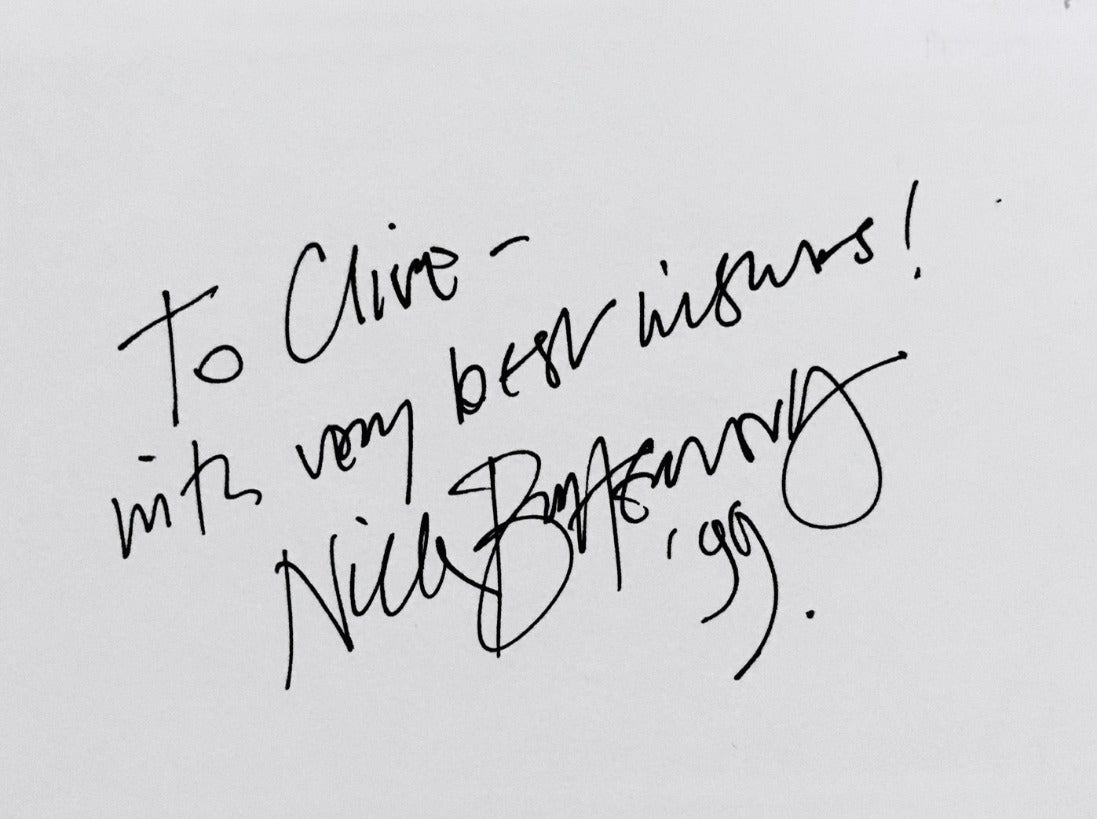 To Clive -
with very best wishes!
Nick
'99.